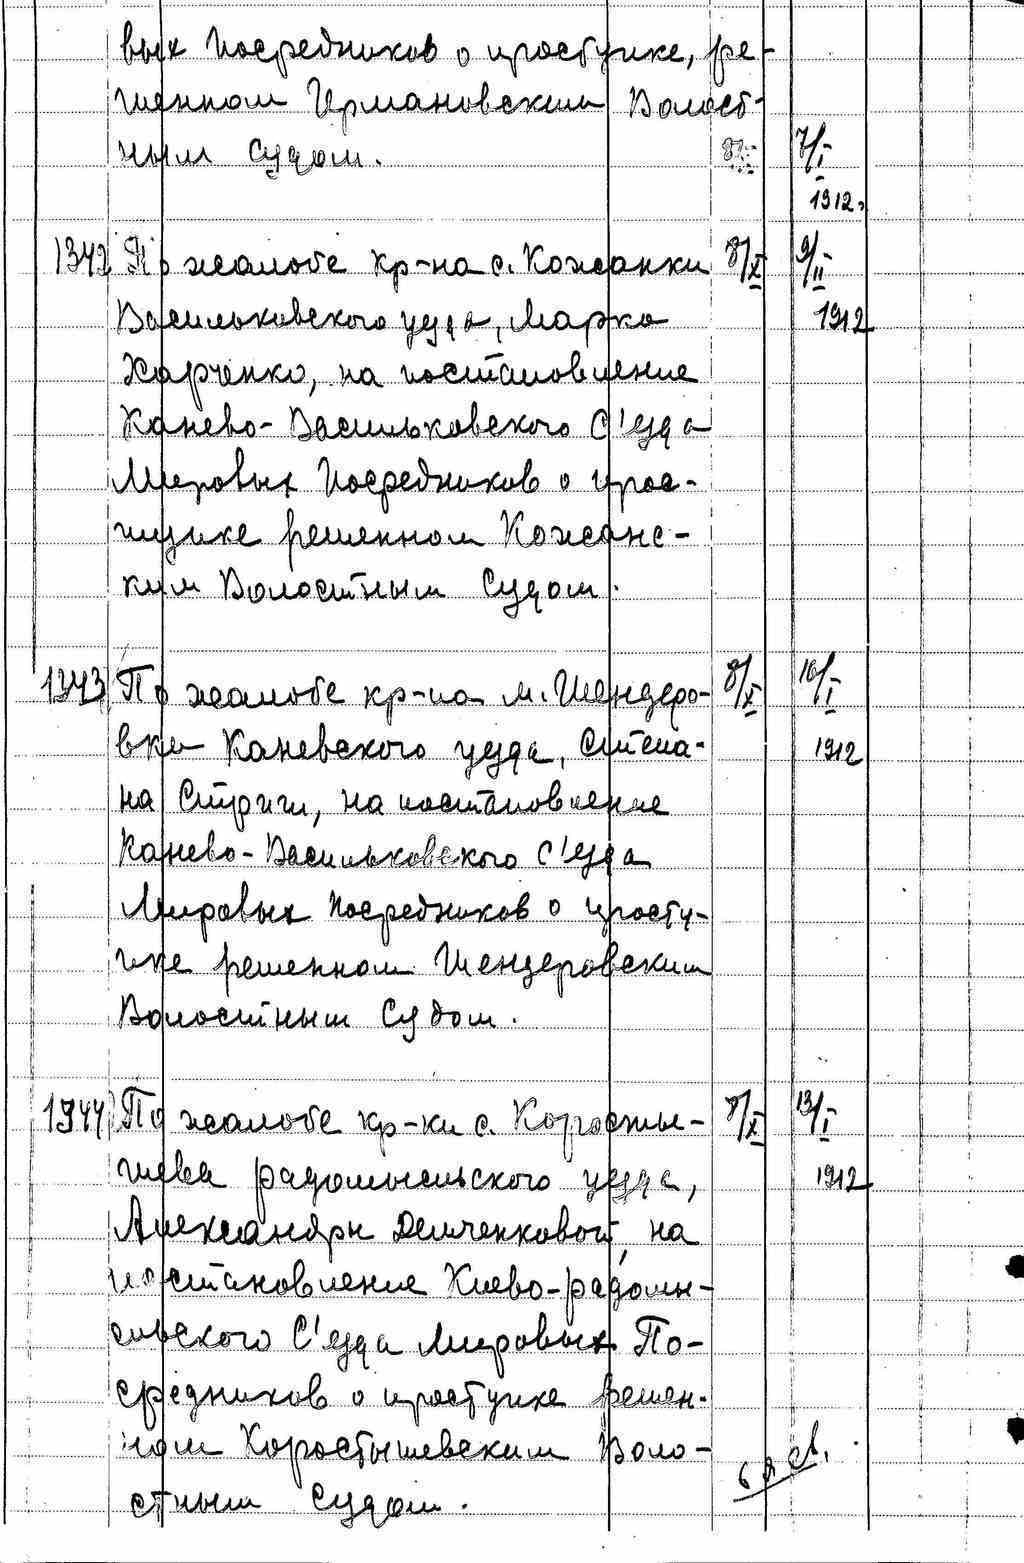 вых Посредников о проступке, ре-
шенном Ирмановским Волост-
ным Судом. 7/I
1912.
1342 По жалобе кр-на с. Кожанки 8/XI 9/II
Васильковского уезда, Марка 1912
Харченко, на постановление
Канево-Васильковского С'езда
Мировых Посредников о прос-
тупке решенном Кожанс-
ким Волостным Судом.
1343 По жалобе кр-на м. Шендеро- 8/XI 10/I
вки Каневского уезда, Степа- 1912
на Стриги, на постановление
Канево-Васильковского С'езда
Мировых Посредников о просту-
пке решенном Шендеровским
Волостным Судом.
1344 По жалобе кр-ки с. Коросты- 8/XI 13/I
шева радомысльского уезда, 1912
Александры Демченковой, на
постановление Киево-радомы-
сльского С'езда Мировых По-
средников о проступке решен-
ном Коростышевским Воло-
стным Судом.